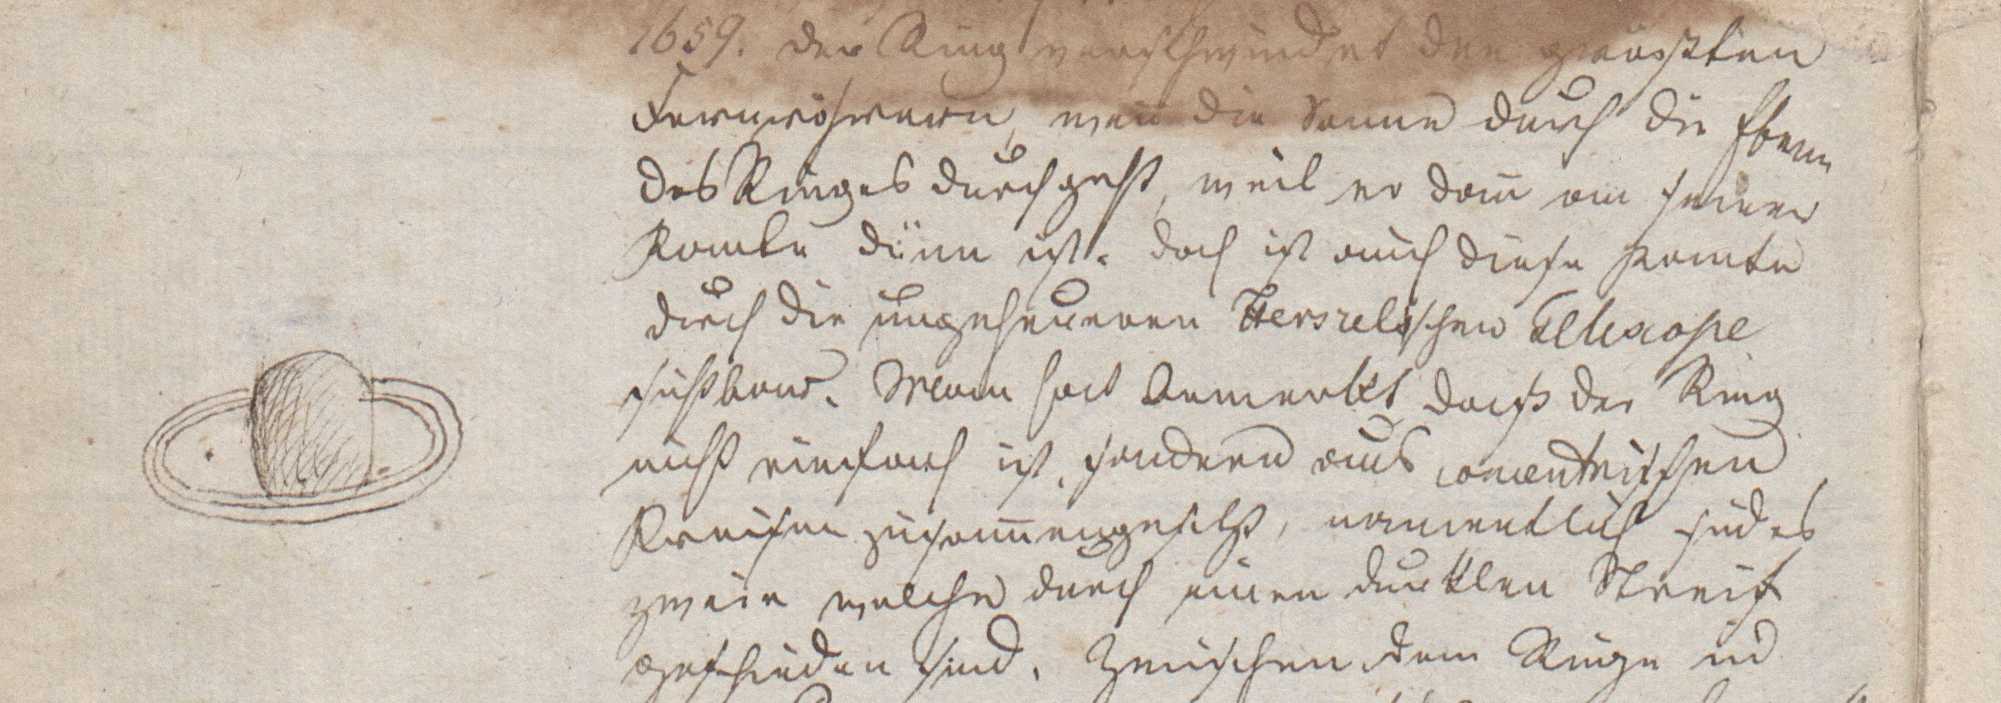 1659. der Ring verschwindet den grössten
Fernröhren, wen die Sonne durch die Ebene
des Ringes durchgeht, weil er dañ an seiner
Kante dünn ist. doch ist auch diese Kante
durch die ungeheueren Herschelschen Telescope
sichtbar. Man hat bemerkt daß der Ring
nicht einfach ist, sondern aus concentrischen
Kreisen zusam̄engesetzt, namentlich sind es
zwei welche durch einen dunklen Streif
geschieden sind. Zwischen dem Ringe ud